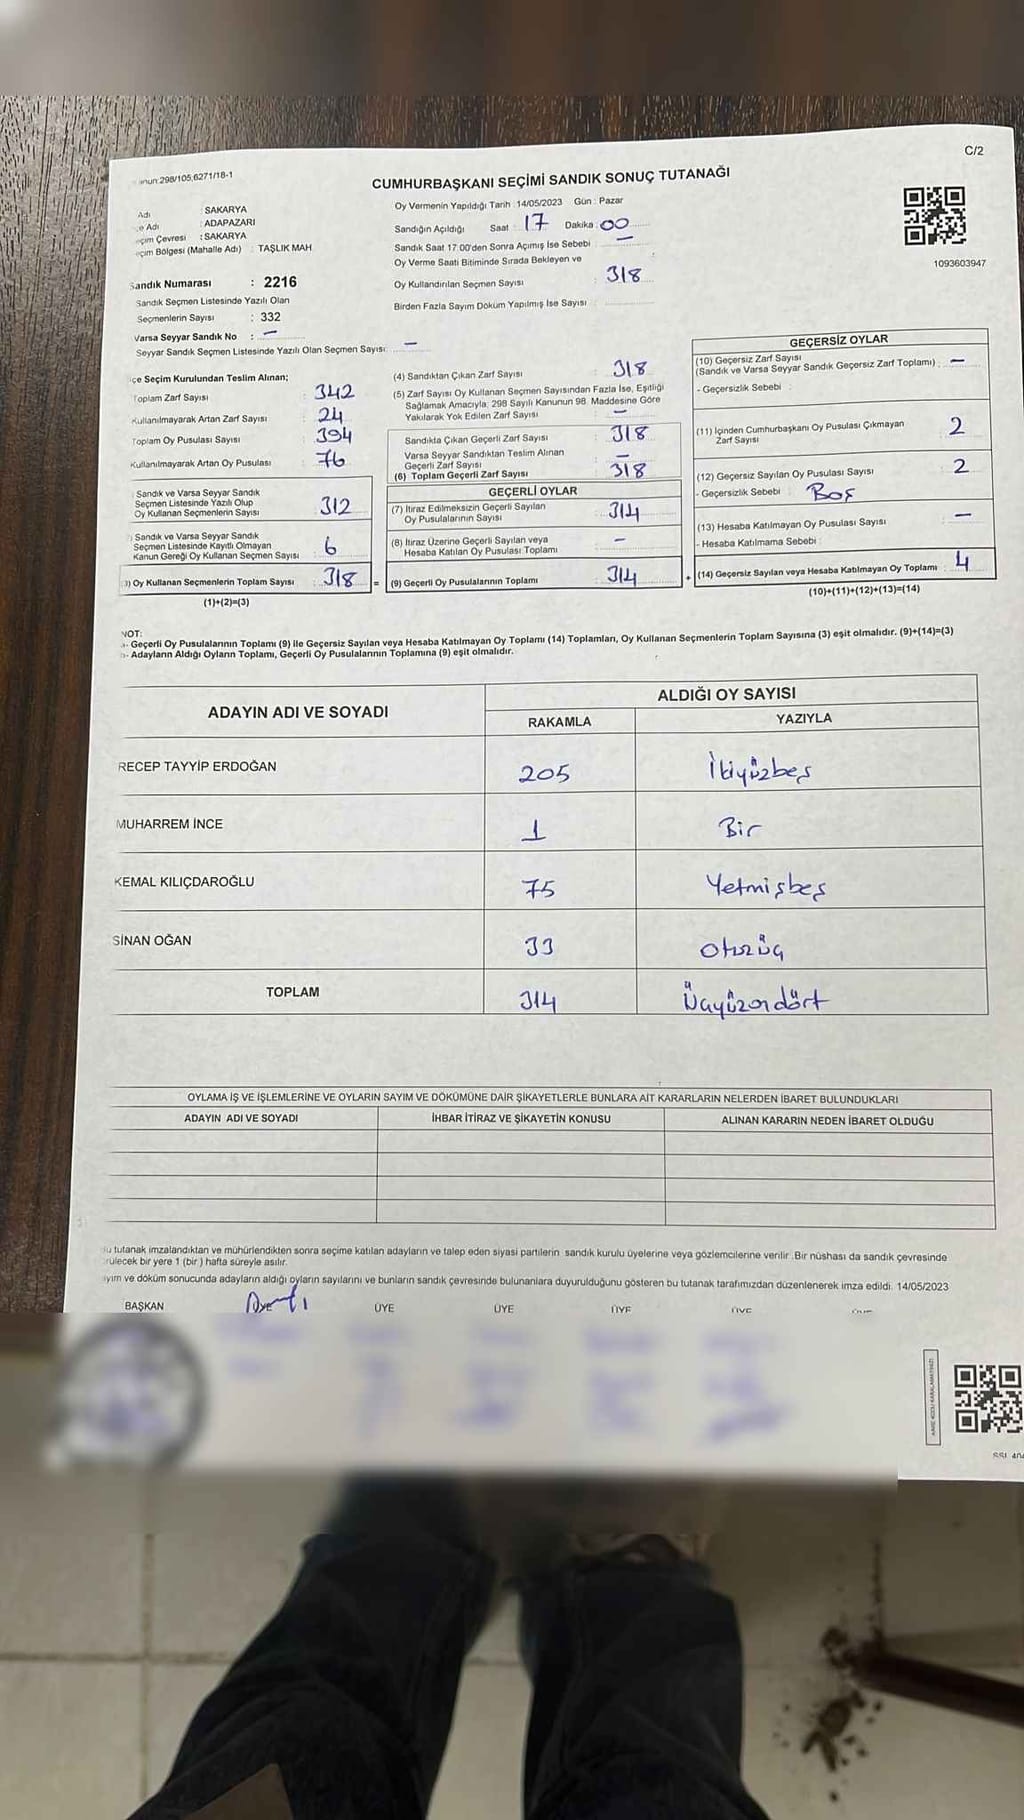 298/105,6271/18-1
C/2
CUMHURBAŞKANI SEÇİMİ SANDIK SONUÇ TUTANAĞI
Adı : SAKARYA
Adı : ADAPAZARI
Çevresi : SAKARYA
Bölgesi (Mahalle Adı) : TAŞLIK MAH.
Sandık Numarası : 2216
Sandık Seçmen Listesinde Yazılı Olan
Seçmenlerin Sayısı : 332
Varsa Seyyar Sandık No : —
Seyyar Sandık Seçmen Listesinde Yazılı Olan Seçmen Sayısı: —
Oy Vermenin Yapıldığı Tarih : 14/05/2023 Gün : Pazar
Sandığın Açıldığı Saat : 17 Dakika : 00
Sandık Saat 17:00'den Sonra Açımış İse Sebebi : —
Oy Verme Saati Bitiminde Sırada Bekleyen ve
Oy Kullandırılan Seçmen Sayısı : 318
Birden Fazla Sayım Döküm Yapılmış İse Sayısı :
1093603947
Seçim Kurulundan Teslim Alınan;
Toplam Zarf Sayısı : 342
Kullanılmayarak Artan Zarf Sayısı : 24
Toplam Oy Pusulası Sayısı : 394
Kullanılmayarak Artan Oy Pusulası : 76
Sandık ve Varsa Seyyar Sandık
Seçmen Listesinde Yazılı Olup
Oy Kullanan Seçmenlerin Sayısı : 312
Sandık ve Varsa Seyyar Sandık
Seçmen Listesinde Kayıtlı Olmayan
Kanun Gereği Oy Kullanan Seçmen Sayısı : 6
) Oy Kullanan Seçmenlerin Toplam Sayısı : 318 =
(1)+(2)=(3)
(4) Sandıktan Çıkan Zarf Sayısı : 318
(5) Zarf Sayısı Oy Kullanan Seçmen Sayısından Fazla İse, Eşitliği
Sağlamak Amacıyla; 298 Sayılı Kanunun 98. Maddesine Göre
Yakılarak Yok Edilen Zarf Sayısı : —
Sandıkta Çıkan Geçerli Zarf Sayısı : 318
Varsa Seyyar Sandıktan Teslim Alınan
Geçerli Zarf Sayısı : —
(6) Toplam Geçerli Zarf Sayısı : 318
GEÇERLİ OYLAR
(7) İtiraz Edilmeksizin Geçerli Sayılan
Oy Pusulalarının Sayısı : 314
(8) İtiraz Üzerine Geçerli Sayılan veya
Hesaba Katılan Oy Pusulası Toplamı : —
(9) Geçerli Oy Pusulalarının Toplamı : 314 +
GEÇERSİZ OYLAR
(10) Geçersiz Zarf Sayısı
(Sandık ve Varsa Seyyar Sandık Geçersiz Zarf Toplamı) : —
- Geçersizlik Sebebi :
(11) İçinden Cumhurbaşkanı Oy Pusulası Çıkmayan
Zarf Sayısı : 2
(12) Geçersiz Sayılan Oy Pusulası Sayısı : 2
- Geçersizlik Sebebi : Boş
(13) Hesaba Katılmayan Oy Pusulası Sayısı : —
- Hesaba Katılmama Sebebi :
(14) Geçersiz Sayılan veya Hesaba Katılmayan Oy Toplamı : 4
(10)+(11)+(12)+(13)=(14)
NOT:
a- Geçerli Oy Pusulalarının Toplamı (9) ile Geçersiz Sayılan veya Hesaba Katılmayan Oy Toplamı (14) Toplamları, Oy Kullanan Seçmenlerin Toplam Sayısına (3) eşit olmalıdır. (9)+(14)=(3)
b- Adayların Aldığı Oyların Toplamı, Geçerli Oy Pusulalarının Toplamına (9) eşit olmalıdır.
ADAYIN ADI VE SOYADI
ALDIĞI OY SAYISI
RAKAMLA YAZIYLA
RECEP TAYYİP ERDOĞAN 205 İkiyüzbeş
MUHARREM İNCE 1 Bir
KEMAL KILIÇDAROĞLU 75 Yetmişbeş
SİNAN OĞAN 33 Otuzüç
TOPLAM 314 Üçyüzondört
OYLAMA İŞ VE İŞLEMLERİNE VE OYLARIN SAYIM VE DÖKÜMÜNE DAİR ŞİKAYETLERLE BUNLARA AİT KARARLARIN NELERDEN İBARET BULUNDUKLARI
ADAYIN ADI VE SOYADI İHBAR İTİRAZ VE ŞİKAYETİN KONUSU ALINAN KARARIN NEDEN İBARET OLDUĞU
tutanak imzalandıktan ve mühürlendikten sonra seçime katılan adayların ve talep eden siyasi partilerin sandık kurulu üyelerine veya gözlemcilerine verilir .Bir nüshası da sandık çevresinde
bir yere 1 (bir ) hafta süreyle asılır.
ve döküm sonucunda adayların aldığı oyların sayılarını ve bunların sandık çevresinde bulunanlara duyurulduğunu gösteren bu tutanak tarafımızdan düzenlenerek imza edildi. 14/05/2023
BAŞKAN ÜYE ÜYE ÜYE ÜYE